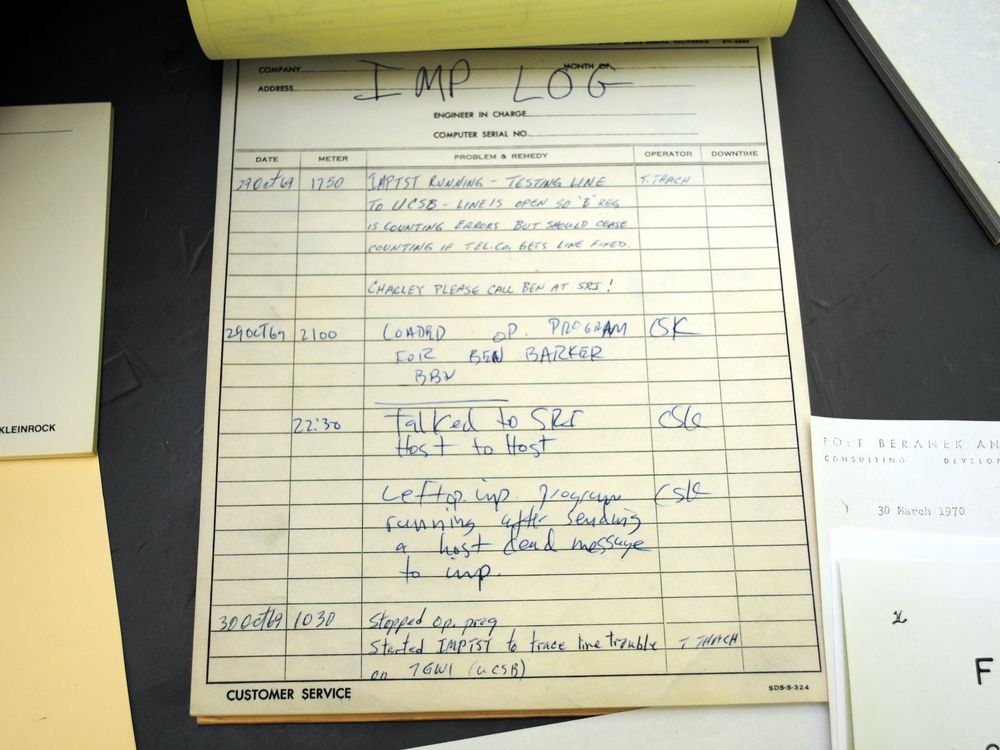 MONTH OF
COMPANY
ADDRESS
IMP LOG
ENGINEER IN CHARGE
COMPUTER SERIAL NO.
DATE METER PROBLEM & REMEDY OPERATOR DOWNTIME
29 Oct 69 1750 IMPTST RUNNING - TESTING LINE T. THACH
TO UCSB - LINE IS OPEN SO 'B' REG
IS COUNTING ERRORS BUT SHOULD CEASE
COUNTING IF TEL. CO. GETS LINE FIXED.
CHARLEY PLEASE CALL BEN AT SRI!
29 OCT 69 2100 LOADED OP. PROGRAM CSK
FOR BEN BARKER
BBN
22:30 Talked to SRI CSK
Host to Host
Left op. imp. program CSK
running after sending
a host dead message
to imp.
30 Oct 69 1030 Stopped op. prog
Started IMPTST to trace line trouble T. THACH
on (UCSB)
CUSTOMER SERVICE
SDS-S-324
KLEINROCK
BOLT BERANEK AN
CONSULTING DEVELOP
30 March 1970
F